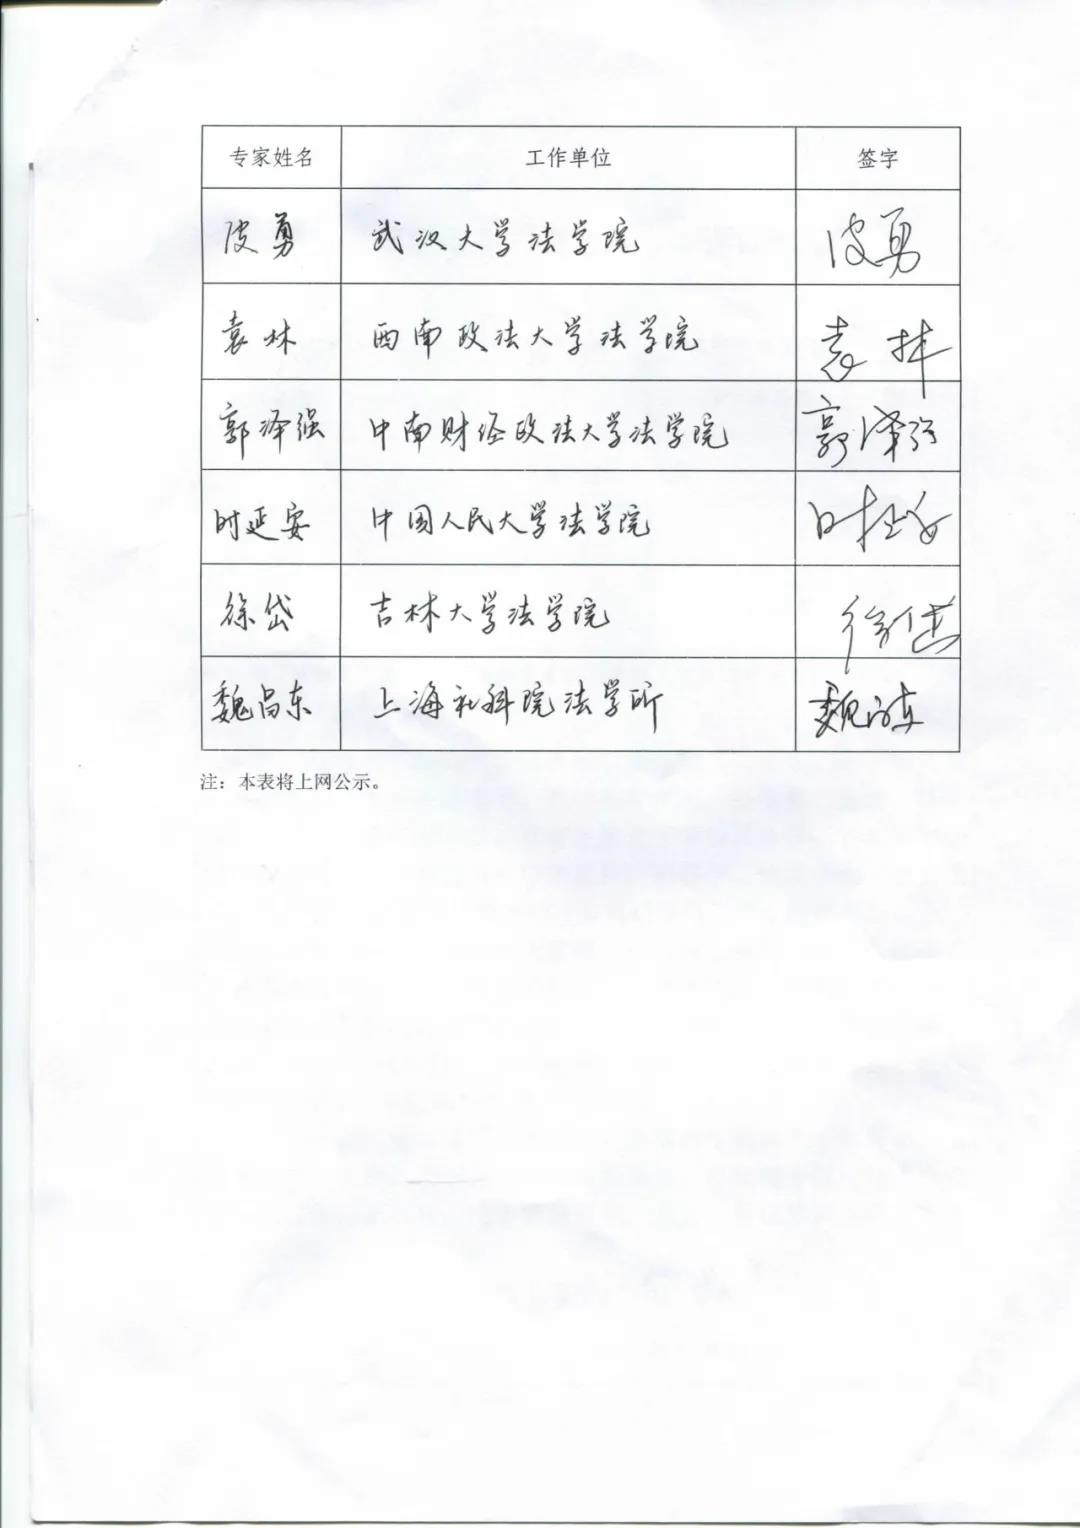 专家姓名 工作单位 签字
皮勇 武汉大学法学院 皮勇
袁林 西南政法大学法学院 袁林
郭泽强 中南财经政法大学法学院 郭泽强
时延安 中国人民大学法学院 时延安
徐岱 吉林大学法学院 徐岱
魏昌东 上海社科院法学所 魏昌东
注：本表将上网公示。